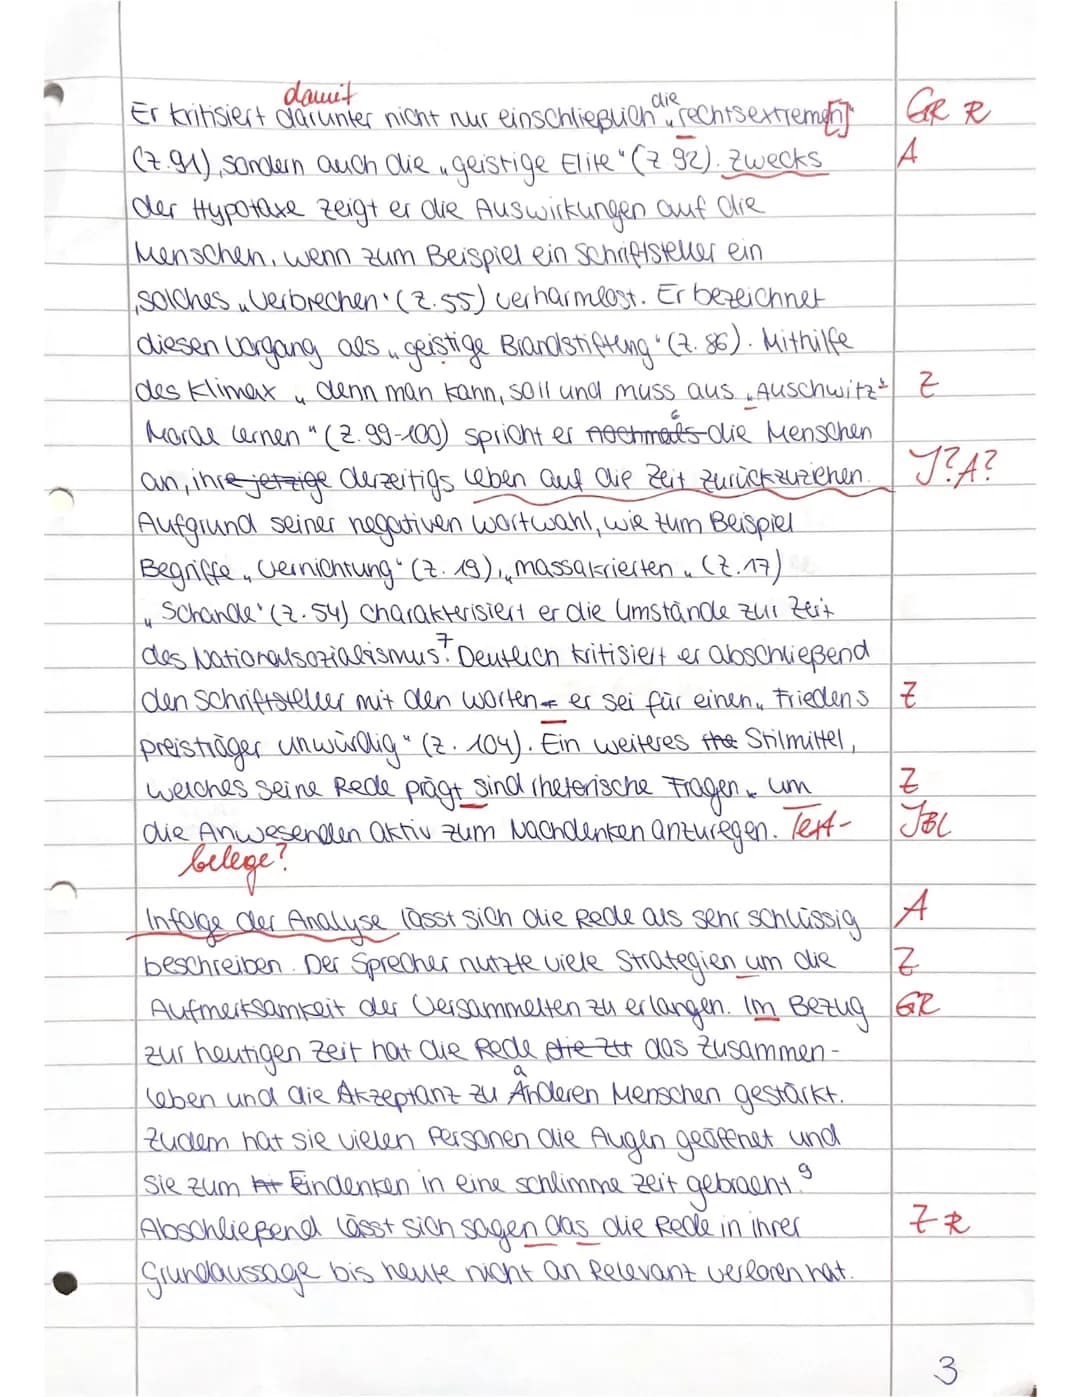 damit
die
Er kritisiert darunter nicht nur einschließlich „rechtsextremen[]" GR R
(Z.91), sondern auch die „geistige Elite" (Z 92). Zwecks A
der Hypotaxe zeigt er die Auswirkungen auf die
Menschen, wenn zum Beispiel ein Schriftsteller ein
solches „Verbrechen" (Z.55) verharmlost. Er bezeichnet
diesen Vorgang als „geistige Brandstiftung" (Z. 86). Mithilfe
des Klimax „denn man kann, soll und muss aus „Auschwitz" Z
6
Moral lernen" (Z.99-100) spricht er nochmals die Menschen
an, ihre jetzige derzeitigs Leben auf die Zeit zurückzuziehen. I? A?
Aufgrund seiner negativen Wortwahl, wie zum Beispiel
Begriffe „Vernichtung" (Z. 19), „massakrierten" (Z.17)
„Schande" (Z.54) charakterisiert er die Umstände zur Zeit
des Nationalsozialismus.7 Deutlich kritisiert er abschließend
den Schriftsteller mit den Worten er sei für einen „Friedens Z
preisträger unwürdig" (Z. 104). Ein weiteres the Stilmittel,
welches seine Rede prägt sind rheterische Fragen um Z
die Anwesenden aktiv zum Nachdenken anzuregen. Text- IBL
belege?
Infolge der Analyse lässt sich die Rede als sehr schlüssig A
beschreiben. Der Sprecher nutzte viele Strategien um die Z
Aufmerksamkeit der Versammelten zu erlangen. Im Bezug GR
zur heutigen Zeit hat die Rede die zu das Zusammen-
a
leben und die Akzeptanz zu Anderen Menschen gestärkt.
Zudem hat sie vielen Personen die Augen geöffnet und
sie zum Eindenken in eine schlimme Zeit gebracht.9
Abschließend lässt sich sagen das die Rede in ihrer Z R
Grundaussage bis heute nicht an Relevant verloren hat.
3